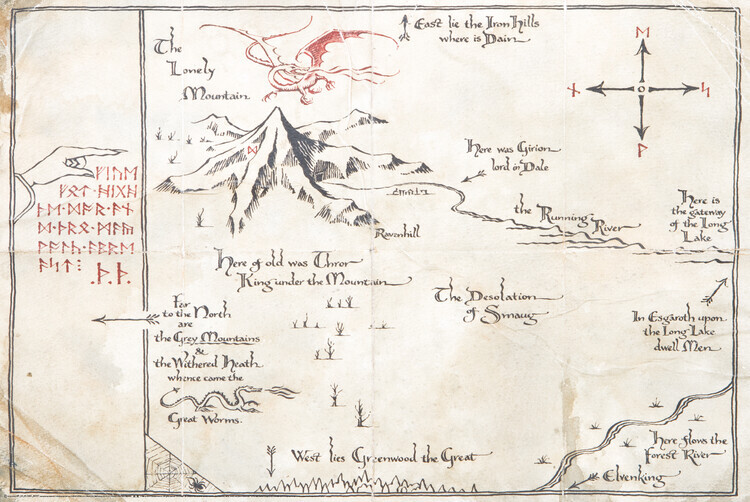 East lie the Iron Hills
where is Dain
The
Lonely
Mountain
ᛖ
ᚾ
ᛋ
ᚹ
ᛞ
Here was Girion
lord in Dale
ᚠᛁᚢᛖ
ᚠᛟᛏ·ᚻᛁᚷᚻ
ᚦᛖ·ᛞᚩᚱ·ᚪᚾ
ᛞ·ᚦᚱᛟ·ᛗᚪᚣ
ᚹᚪᛚᚳ·ᚪᛒᚱᛖ
ᚪᛋᛏ⁝
·ᚦ·ᚦ·
the Running River
Here is
the gateway
of the Long
Lake
Ravenhill
Here of old was Thror
King under the Mountain
The Desolation
of Smaug
Far
to the North
are
the Grey Mountains
&
the Withered Heath
whence came the
Great Worms.
In Esgaroth upon
the Long Lake
dwell Men
Here flows the
Forest River
West lies Greenwood the Great
Elvenking